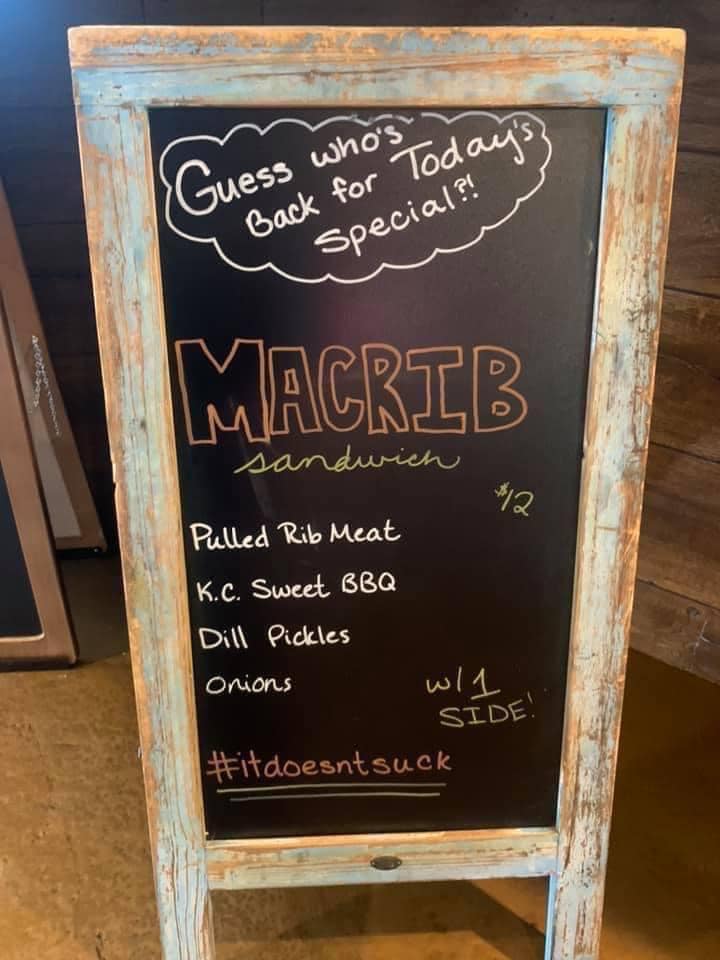 Guess who's
Back for Today's
Special?!
MACRIB
sandwich
$12
Pulled Rib Meat
K.C. Sweet BBQ
Dill Pickles
Onions
w/1
SIDE!
#itdoesntsuck